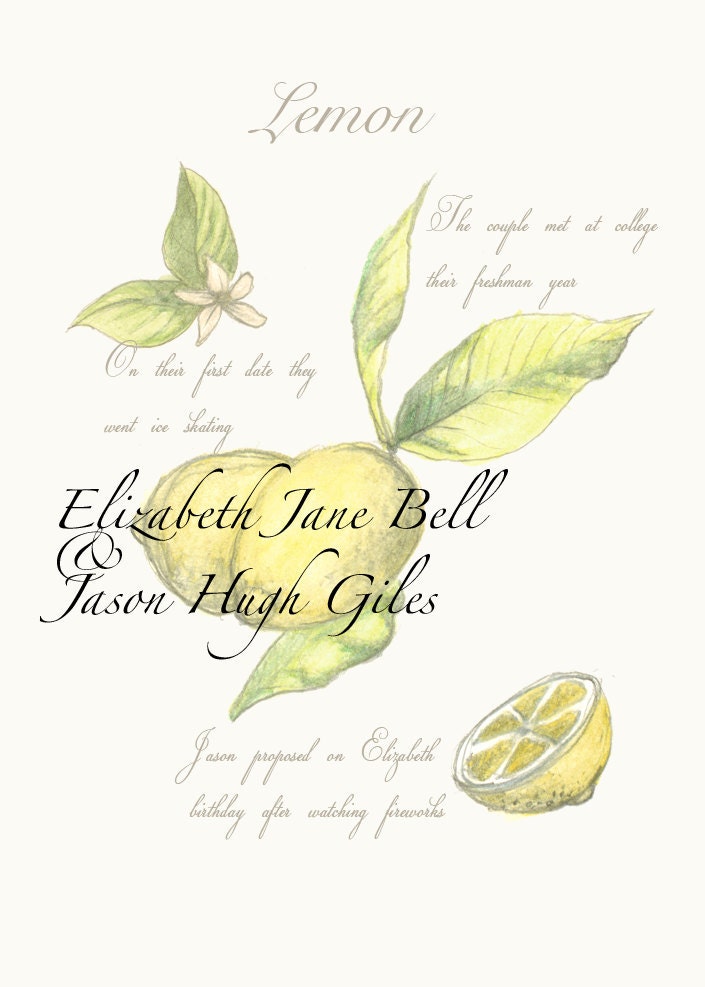 Lemon
The couple met at college
their freshman year
On their first date they
went ice skating
Elizabeth Jane Bell
&
Jason Hugh Giles
Jason proposed on Elizabeth
birthday after watching fireworks